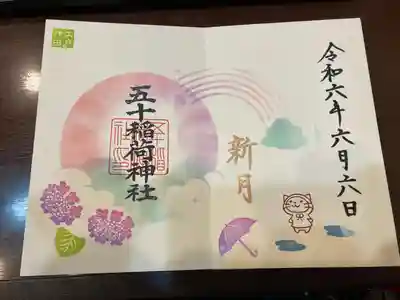 令和六年六月六日
新月
五十稲荷神社